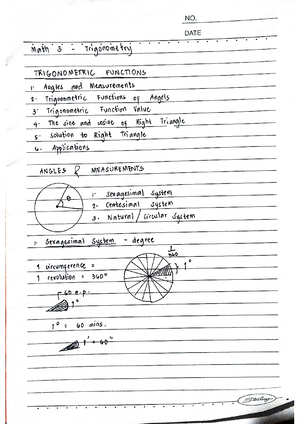 NO.
DATE
Math 3 - Trigonometry
TRIGONOMETRIC FUNCTIONS
1. Angles and Measurements
2. Trigonometric Functions of Angels
3. Trigonometric Function Value
4. The sine and cosine of Right Triangle
5. Solution to Right Triangle
6. Applications
ANGLES & MEASUREMENTS
θ
1. Sexagesimal System
2. Centesimal System
3. Natural / Circular System
1. Sexagesimal System - degree
1 circumference =
1 revolution = 360°
1/360
1°
60 e.p.
1°
1° = 60 mins.
1' = 60"